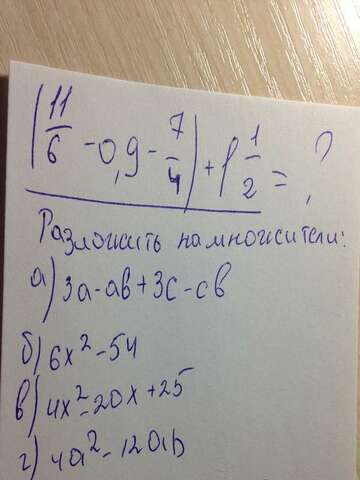 (11/6 - 0,9 - 7/4) + 1 1/2 = ?
Разложить на множители:
а) 3а - ав + 3с - св
б) 6х² - 54
в) 4х² - 20х + 25
г) 4а² - 12ab